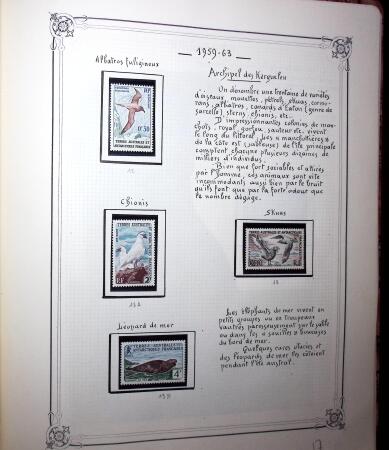 1959-63
Albatros fuligineux
RF
0,50
TERRES AUSTRALES ET
ANTARCTIQUES FRANÇAISES
12
Archipel des Kerguelen
On dénombre une trentaine de variétés
d'oiseaux, mouettes, pétrels, skuas, cormo-
rans, albatros, canards d'Eaton (genre de
sarcelle) sterns, chionis, etc..
D'impressionnantes colonies de man-
chots, royal, gorfou, sauteur etc. vivent
le long du littoral. Les "manchotières"
de la côte est (sableuse) de l'île principale
comptent chacune plusieurs dizaines de
milliers d'individus.
Bien que fort sociables et attirés
par l'homme, ces animaux sont vite
incommodants aussi bien par le bruit
qu'ils font que par la forte odeur que
le nombre dégage.
Chionis
TERRES AUSTRALES
RF
2F
Skuas
TERRES AUSTRALES ET ANTARCTIQUES
13
Léopard de mer
TERRES AUSTRALES ET
ANTARCTIQUES FRANÇAISES
4F
Les éléphants de mer vivent en
petits groupes ou en troupeaux
vautrés paresseusement sur le sable
ou dans les "souilles" boueuses
du bord de mer.
Quelques rares otaries et
des léopards de mer les côtoient
pendant l'été austral.